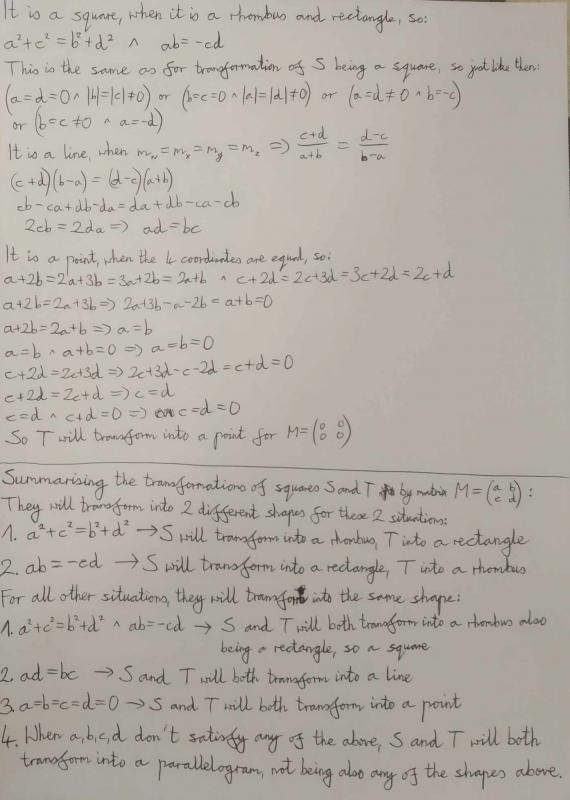 It is a square, when it is a rhombus and rectangle, so:
a²+c²=b²+d² ∧ ab=-cd
This is the same as for transformation of S being a square, so just like then:
(a=d=0 ∧ |b|=|c|≠0) or (b=c=0 ∧ |a|=|d|≠0) or (a=d≠0 ∧ b=-c)
or (b=c≠0 ∧ a=-d)
It is a line, when m_w=m_x=m_y=m_z => (c+d)/(a+b) = (d-c)/(b-a)
(c+d)(b-a)=(d-c)(a+b)
cb-ca+db-da=da+db-ca-cb
2cb=2da=> ad=bc
It is a point, when the 4 coordinates are equal, so:
a+2b=2a+3b=3a+2b=2a+b ∧ c+2d=2c+3d=3c+2d=2c+d
a+2b=2a+3b=> 2a+3b-a-2b=a+b=0
a+2b=2a+b=>a=b
a=b ∧ a+b=0 => a=b=0
c+2d=2c+3d=> 2c+3d-c-2d=c+d=0
c+2d=2c+d =>c=d
c=d ∧ c+d=0 => c=d=0
So T will transform into a point for M=(0 0; 0 0)
Summarising the transformations of squares S and T by matrix M=(a b; c d):
They will transform into 2 different shapes for these 2 situations:
1. a²+c²=b²+d² →S will transform into a rhombus, T into a rectangle
2. ab=-cd →S will transform into a rectangle, T into a rhombus
For all other situations, they will transform into the same shape:
1. a²+c²=b²+d² ∧ ab=-cd → S and T will both transform into a rhombus also
being a rectangle, so a square
2. ad=bc → S and T will both transform into a line
3. a=b=c=d=0 → S and T will both transform into a point
4. When a,b,c,d don't satisfy any of the above, S and T will both
transform into a parallelogram, not being also any of the shapes above.